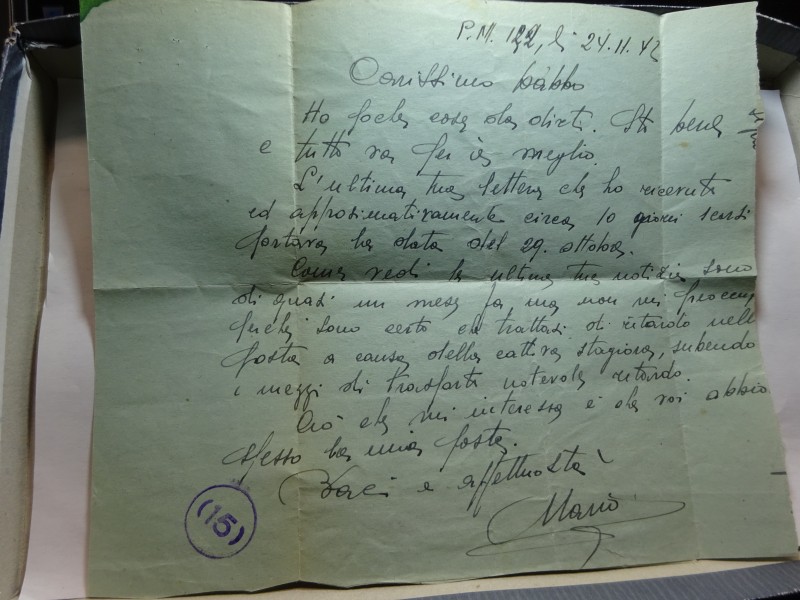 P.M. 122, li 24.11.42
Carissimo babbo
Ho poche cose da dirti. Sto bene
e tutto va per il meglio.
L'ultima tua lettera che ho ricevuto
ed approssimativamente circa 10 giorni
portava la data del 29. ottobre.
Come vedi le ultime tue notizie sono
di quasi un mese fa, ma non mi preoccup
perché sono certo che trattasi di ritardo nella
posta a causa della cattiva stagione, subendo
i mezzi di trasporto notevole ritardo.
Ciò che mi interessa è che voi abbia
spesso la mia posta.
Baci e affettuosità
Mario
(15)